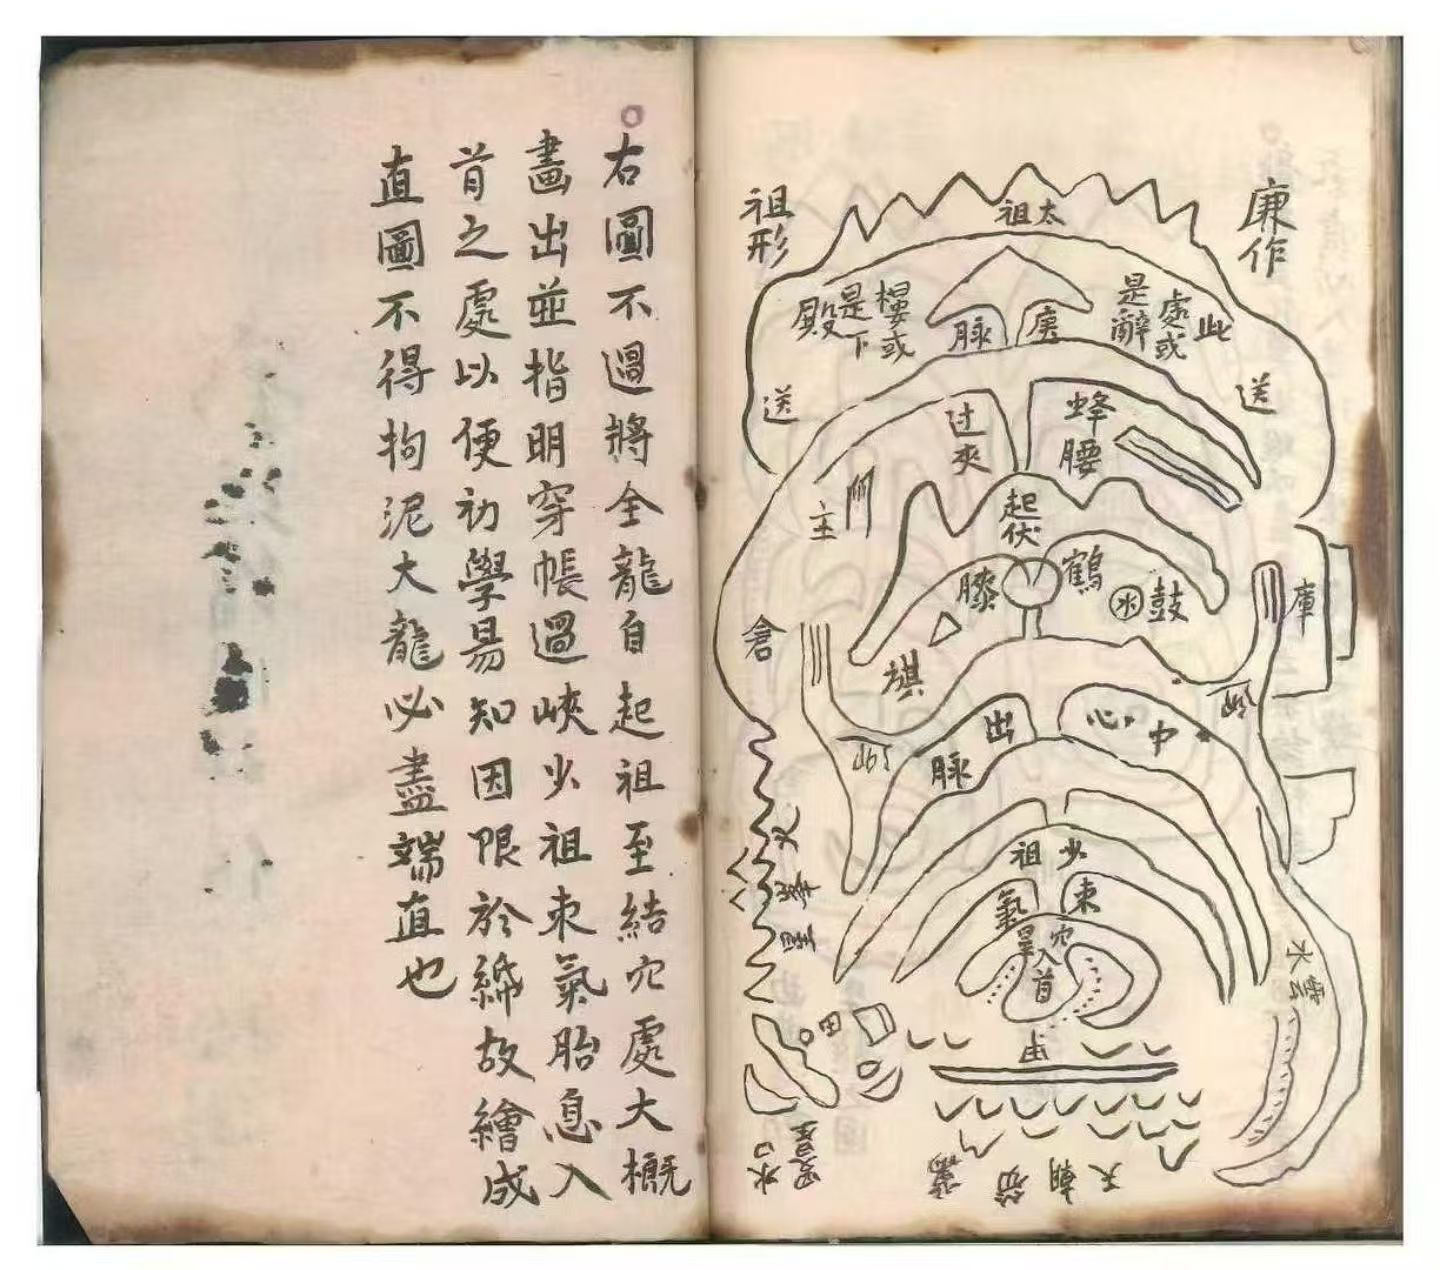 廉作
祖形
太祖
此處或是辭
樓或是下殿
庚
脉
送
送
蜂腰
过夾
主
起伏
鶴
膝
水
鼓
旗
倉
庫
中心
出脉
少祖
束氣
穴
入首
水
田
天朝
右圖不過將全龍自起祖至結穴處大概
畫出並指明穿帳過峽少祖束氣胎息入
首之處以便初學易知因限於紙故繪成
直圖不得拘泥大龍必盡端直也